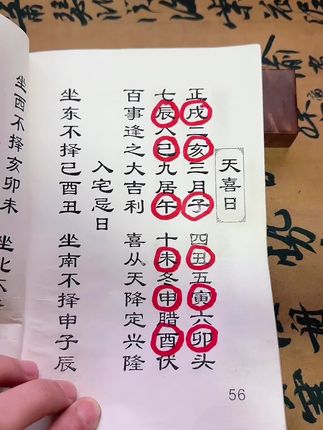 天喜日
正戌二亥三月子 四丑五寅六卯头
七辰八己九居午 十未冬申腊酉伏
百事逢之大吉利 喜从天降定兴隆
入宅忌日
坐东不择己酉丑 坐南不择申子辰
坐西不择亥卯未 坐北不
56